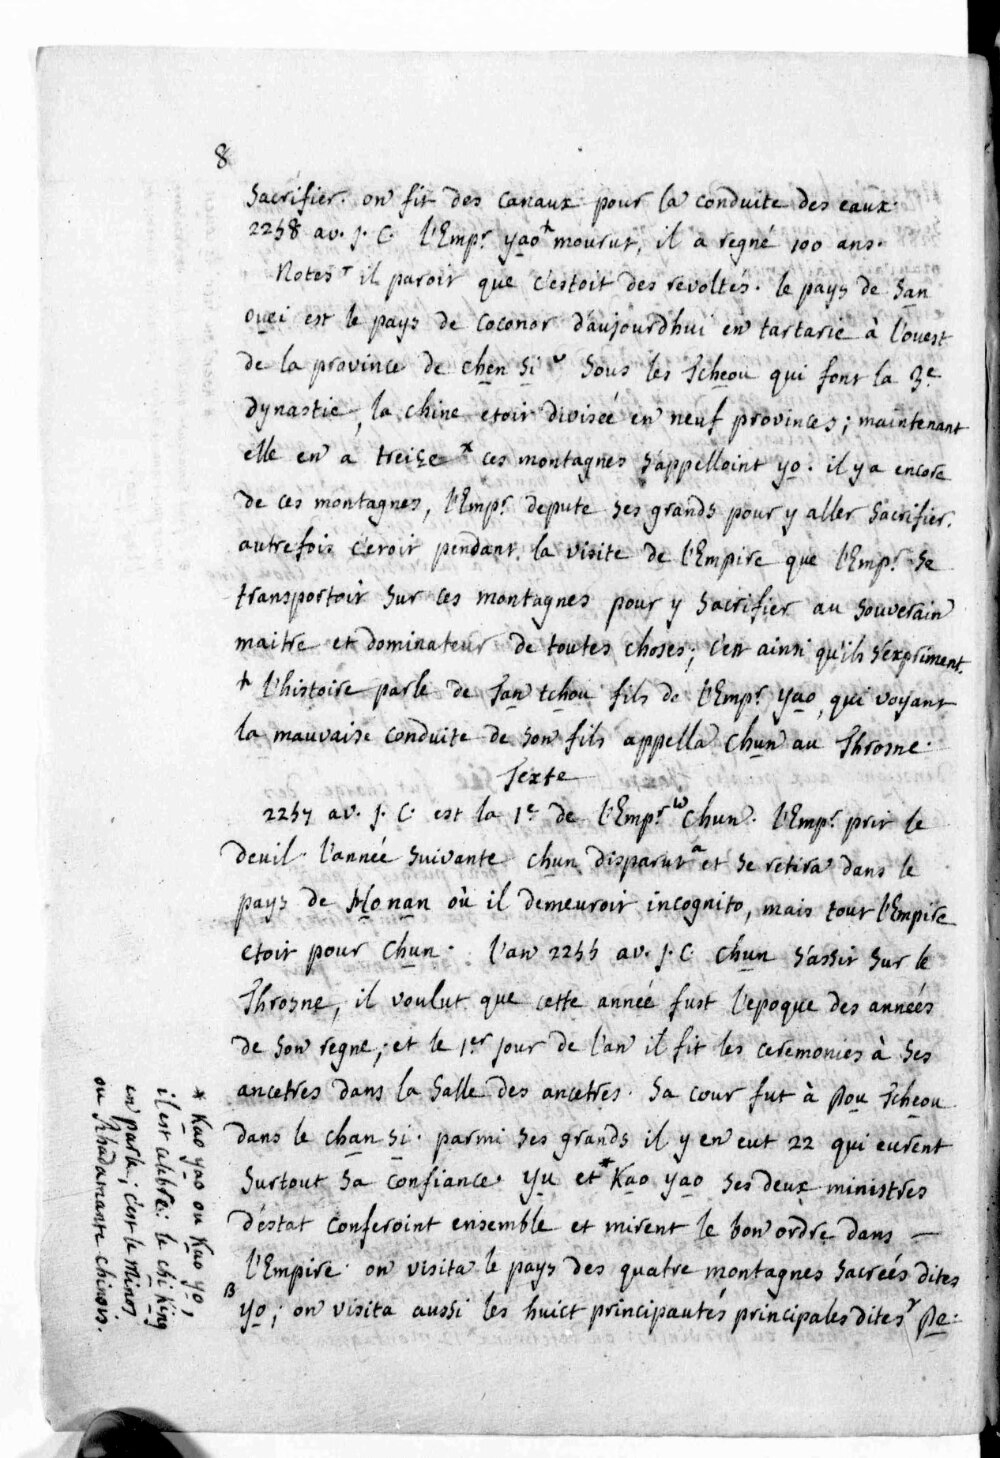 8
Sacrifier. on fit des canaux pour la conduite des eaux.
2258 av. J. C. l'Emp.r yao * mourut, il a regné 100 ans.
Notes r il paroit que c'estoit des revoltés. le pays de San
ouei est le pays de coconor d'aujourd'hui en tartarie à l'ouest
de la province de chen si v Sous les Tcheou qui font la 3.e
dynastie, la chine etoit diviseé en neuf provinces; maintenant
elle en a treize * ces montagnes s'appelloint yo. il y a encore
de ces montagnes, l'Emp.r depute ses grands pour y aller Sacrifier.
autrefois c'etoit pendant la visite de l'Empire que l'Emp.r se
transportoit sur ces montagnes pour y sacrifier au souverain
maitre et dominateur de toutes choses; c'est ainsi qu'ils s'expriment.
* l'histoire parle de Tan tchou fils de l'Emp.r yao, qui voyant
la mauvaise conduite de son fils appella chun au Throsne.
Texte
2257 av. J. C. est la 1.e de l'Emp.r ω chun. l'Emp.r prit le
deuil. l'année suivante chun disparut a et se retira dans le
pays de Honan où il demeuroit incognito, mais tout l'Empire
etoit pour chun. l'an 2255 av. J. C. chun s'assit sur le
Throsne, il voulut que cette anneé fust l'epoque des anneés
de son regne; et le 1.er jour de l'an il fit les ceremonies à ses
ancetres dans la Salle des ancetres. sa cour fut à Pou Tcheou
dans le chan si. parmi ses grands il y en eut 22 qui eurent
surtout sa confiance. yu et * Kao yao ses deux ministres
d'estat conferoint ensemble et mirent le bon ordre dans —
l'Empire. on visita le pays des quatre montagnes sacreés dites
β yo; on visita aussi les huict principautés principales dites γ Pe.
* Kao yao ou Kao yo,
il est celebre: le chi King
en parle; c'est le Minos,
ou Rhadamante chinois.